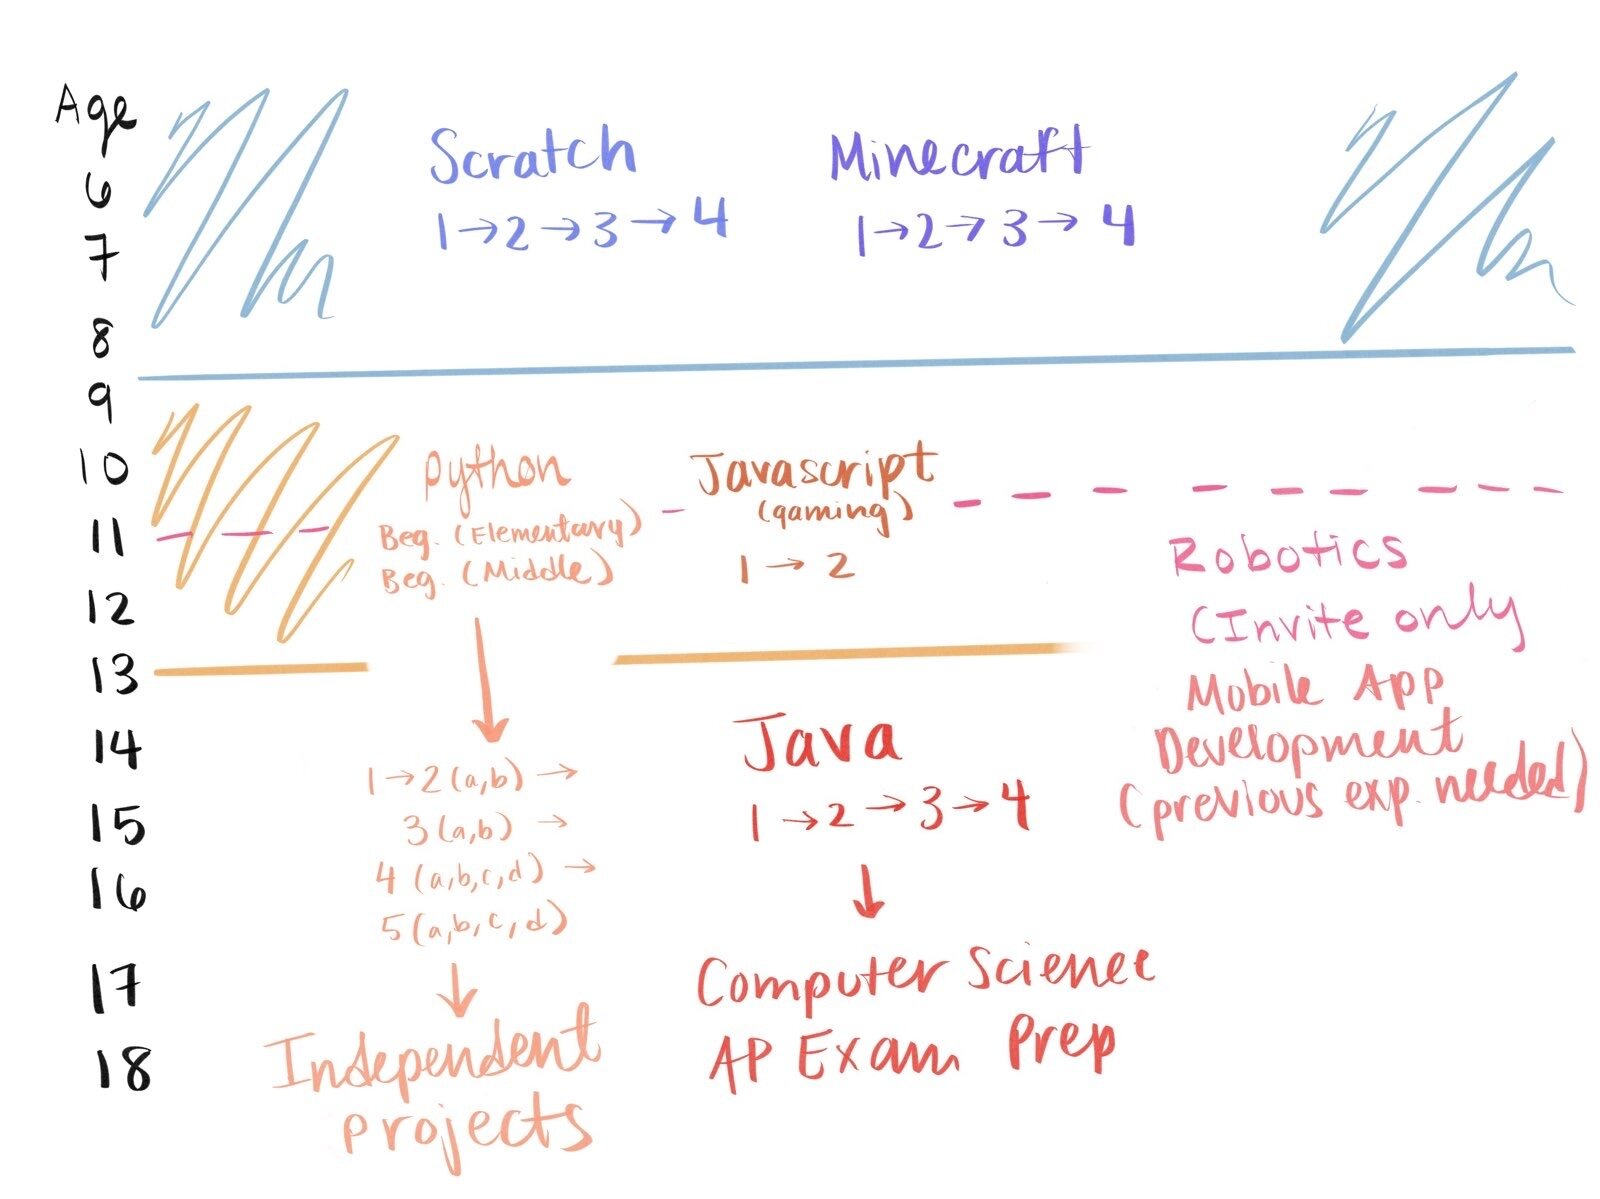 Age
6
7
8
9
10
11
12
13
14
15
16
17
18
Scratch
1→2→3→4
Minecraft
1→2→3→4
python
Beg. (Elementary)
Beg. (Middle)
1→2(a,b)→
3(a,b)→
4(a,b,c,d)→
5(a,b,c,d)
Independent
projects
Javascript
(gaming)
1→2
Java
1→2→3→4
Computer Science
AP Exam Prep
Robotics
(Invite only
Mobile App
Development
(previous exp. needed)